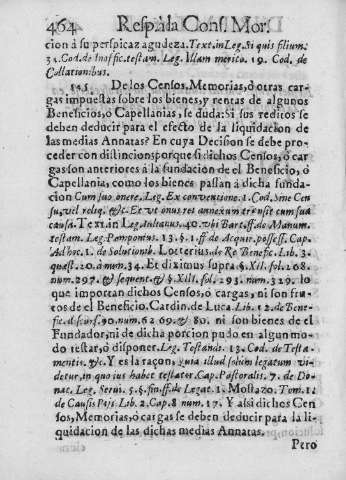 464 Resp. à la Cons. Mor.
cion à su perspicaz agudeza. Text. in Leg. Si quis filium.
32. Cod. de Inoffic. testam. Leg. Illam merito. 19. Cod. de
Collationibus.
545. De los Censos, Memorias, ò otras car-
gas impuestas sobre los bienes, y rentas de algunos
Beneficios, ò Capellanias, se duda: Si sus reditos se
deben deducir para el efecto de la liquidacion de
las medias Annatas? En cuya Decision se debe pro-
ceder con distincion: porque si dichos Censos, ò car-
gas son anteriores à la fundacion de el Beneficio, ò
Capellania, como los bienes passan à dicha funda-
cion Cum suo onere. Leg. Ex conventione. 1. Cod. Sine Cen
su, vel reliq. &c. Et ut onus res annexum transit cum sua
causa. Text. in Leg. Initatus. 40. ubi Bart. ff. de Manum.
testam. Leg. Pomponius. 13. §. 1. ff. de Acquir. possess. Cap.
Ad hoc. 1. de Solutionib. Lotterius de Re Benefic. Lib. 3.
quæst. 20. à num. 34. Et diximus supra §. XII. fol. 268.
num. 297. & sequent. & §. XIII. fol. 293. num. 329. lo
que importan dichos Censos, ò cargas, ni son fru-
tos de el Beneficio. Cardin. de Luca. Lib. 12. de Bene-
fic. discurs. 90. num. 62. 69. & 80. ni son bienes de el
Fundador, ni de dicha porcion pudo en algun mo-
do testar, ò disponer. Leg. Testandi. 13. Cod. de Testa-
mentis. &c. Y es la raçon, quia illud solum legatum vi-
detur, in quo ius habet testator. Cap. Pastoralis. 7. de Do-
nac. Leg. Servi. 5. §. fin. ff. de Legat. 1. Mostazo. Tom. 1.
de Causis Pijs. Lib. 2. Cap. 8. num. 17. Y assi dichos Cen
sos, Memorias, ò cargas se deben deducir para la li-
quidacion de las dichas medias Annatas.
Pero